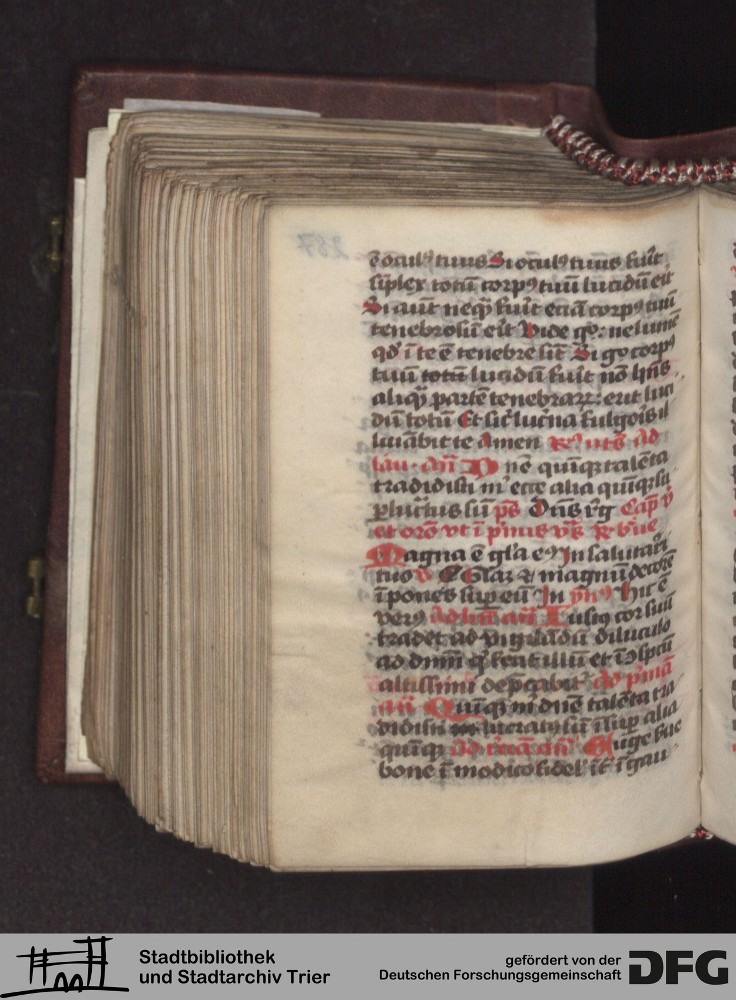 ē ocul⁹ tuus Si ocul⁹ tuus fu̅it
simplex totū corp⁹ tuū lucidū erit
Si aut̄ neq̄ fu̅it eciā corp⁹ tuū
tenebrosū erit Vide go: ne lumē
qd̓ ī te ē tenebre sīt Si go corp⁹
tuū totū lucidū fu̅it nō hn̄s
aliqā partē tenebraꝝ: erit luci
dū totū Et sic̄ luc̄na fulgoris il
luīabit te Amen Ad
lau. añ Dn̄e quinqꝫ talēta
tradidisti m̅ ecce alia quinqꝫ su
ꝑlucͣtus sū ps̄ Dn̄s rg̅ Cap̄
et orō vt ī
Magna ē gl̄a ei⁹ In salutari
tuo v̄ Glaꝫ ⁊ magnū decorē
īpones suꝑ eū In hic ē
ver⁹ añ Iustus cor suū
tradet ad vigilādū diluculo
ad dn̄m q̄ fecit illū et ī ɔspc̄tu
altissimi dep̄cabit̄ Ad p̄mā
añ Quinqꝫ m̅ dn̄e talēta tra
didisti alia
quinqꝫ Ad t̄ciā añ Euge s̄ue
bone ī modico fidel̄ īt̄ ī gau
Stadtbibliothek
und Stadtarchiv Trier
gefördert von der
Deutschen Forschungsgemeinschaft
DFG